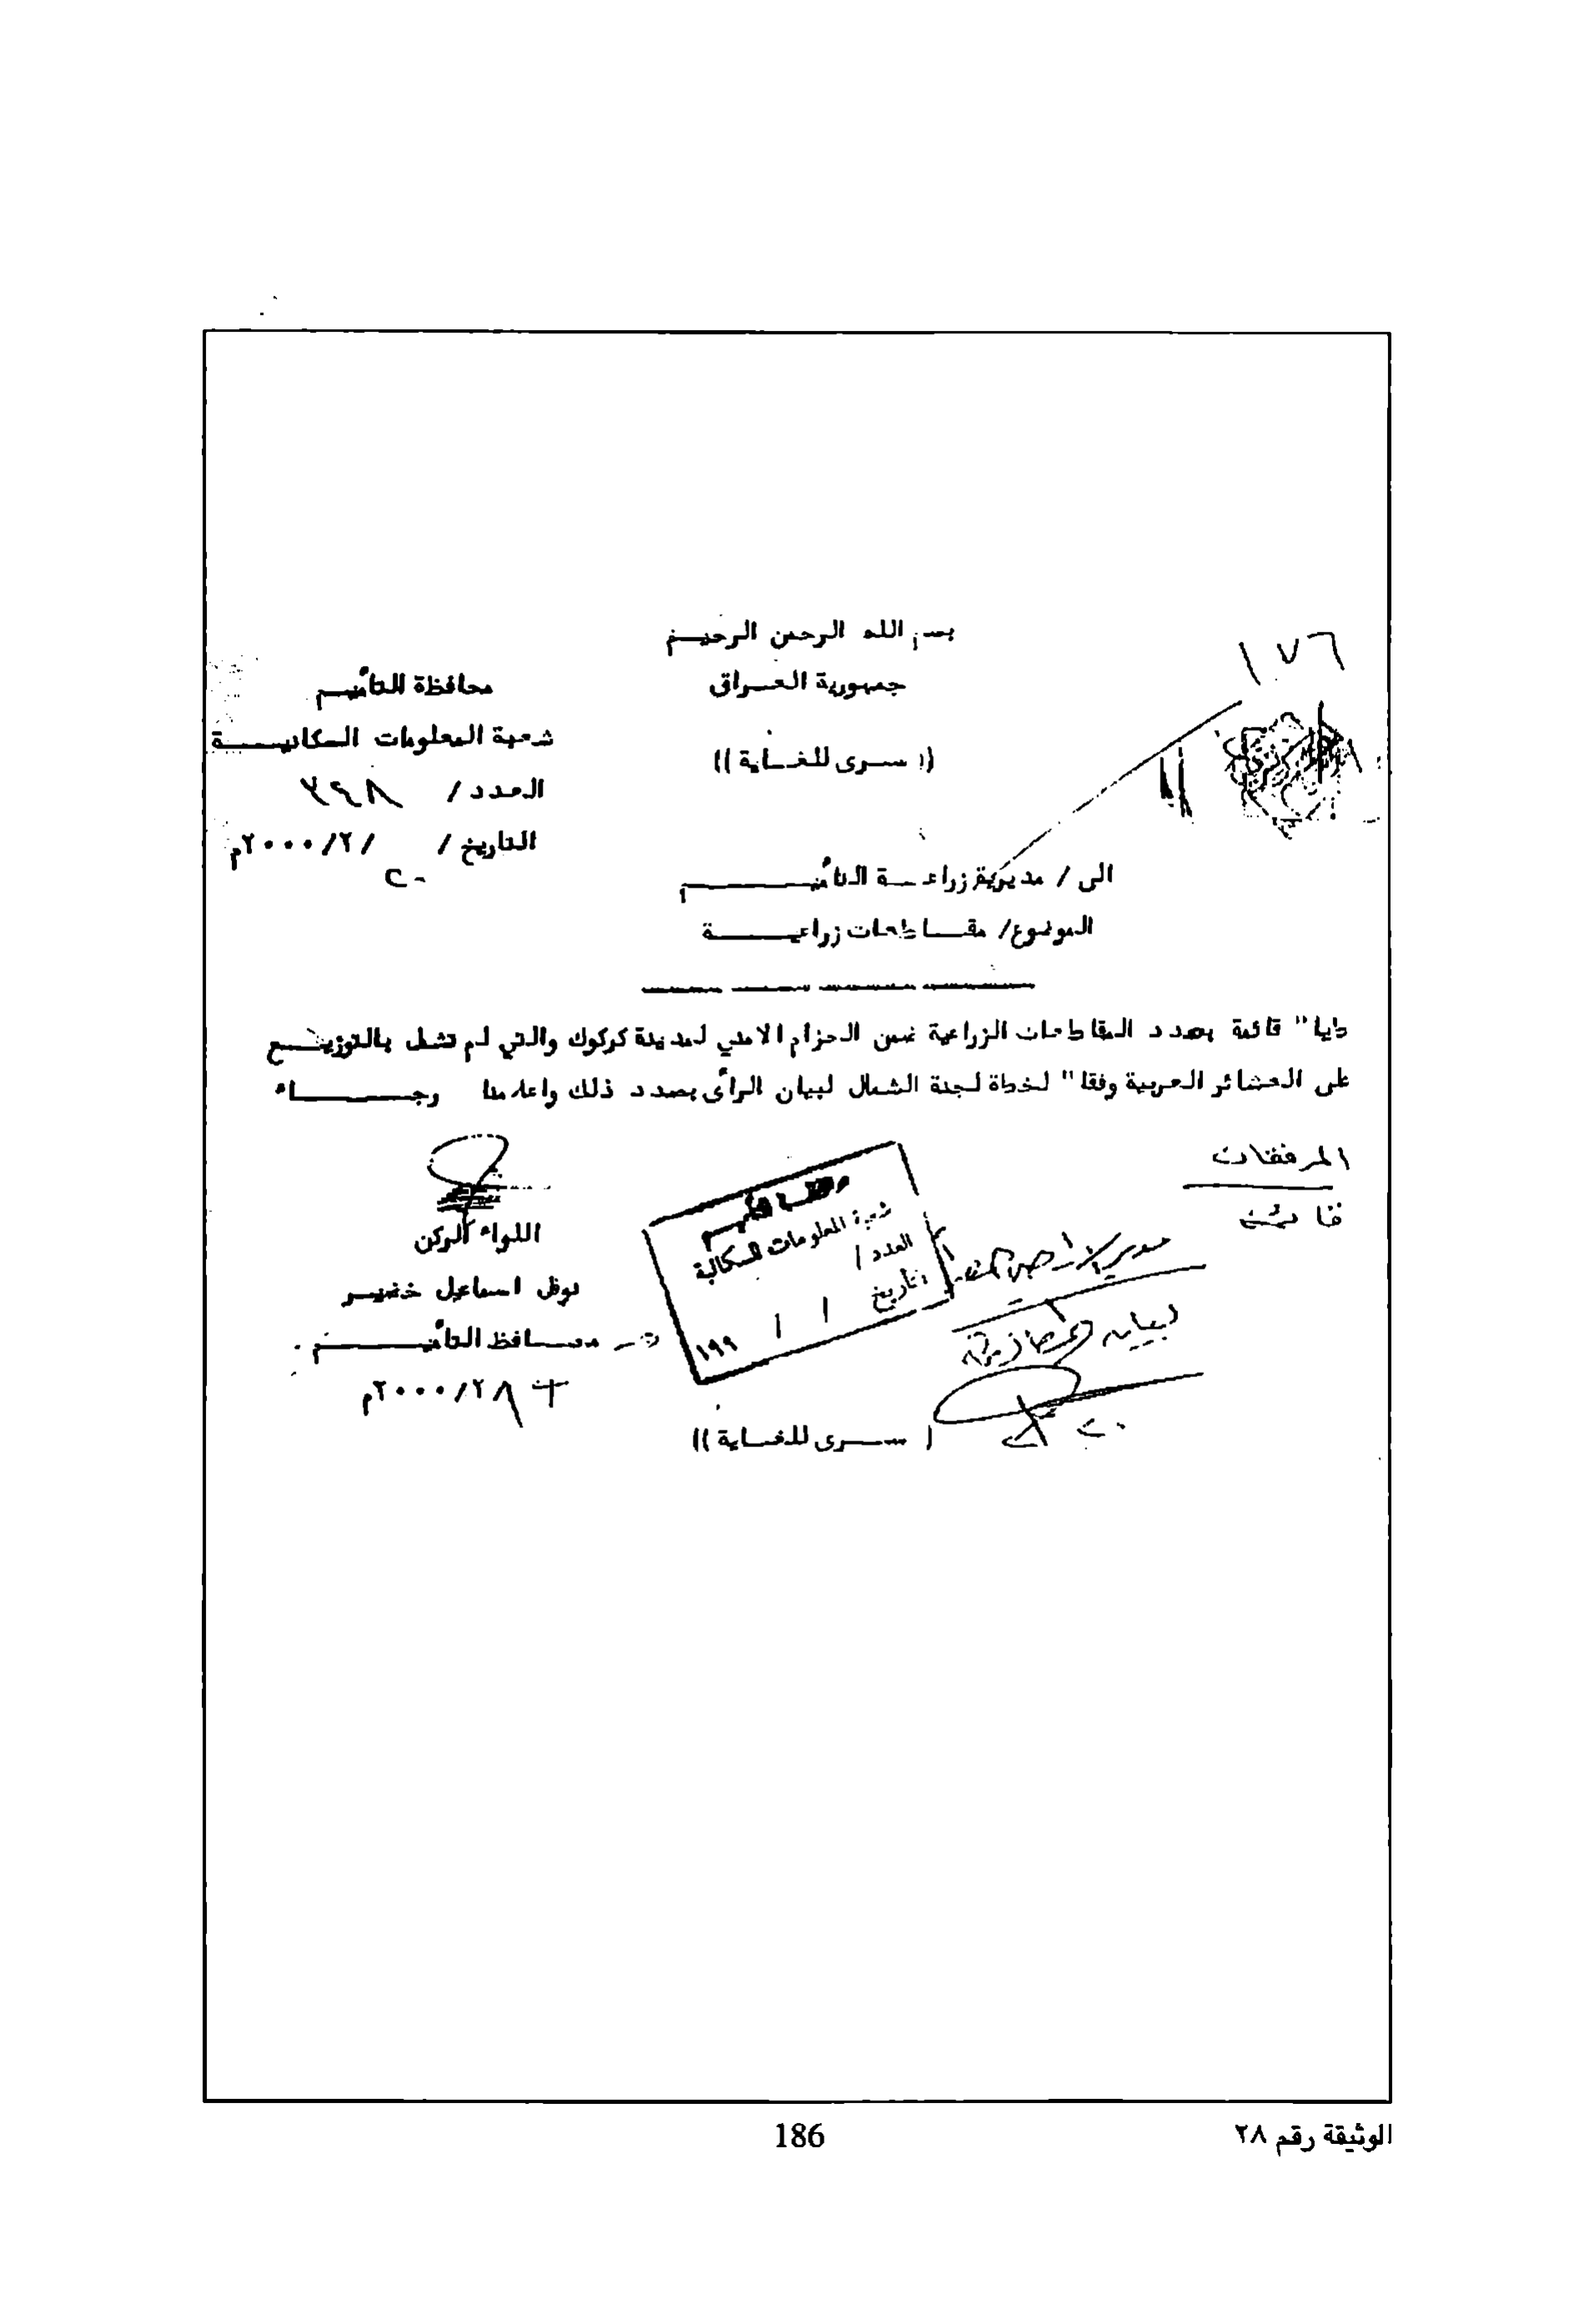 ١٧٦
بسم الله الرحمن الرحيم
جمهورية العراق
(( سرى للغاية ))
محافظة التأميم
شعبة المعلومات السكانية
العدد / ٣٤٨
التاريخ / ٢٠ /٢/٢٠٠٠م
الى / مديرية زراعة التأميم
الموضوع/ مقاطعات زراعية
طيا" قائمة بعدد المقاطعات الزراعية ضمن الحزام الامني لمدينة كركوك والتي لم تشمل بالتوزيع
على العشائر العربية وفقا" لخطة لجنة الشمال لبيان الرأى بصدد ذلك واعلامنا رجاء
المرفقات
قائمة
اللواء الركن
نوفل اسماعيل خضير
محافظ التأميم
/٢/٢٠٠٠م
محافظة التأميم
شعبة المعلومات السكانية
العدد /
تاريخ / / ١٩٩
لبيان
( سرى للغاية ))
الوثيقة رقم ٢٨
186